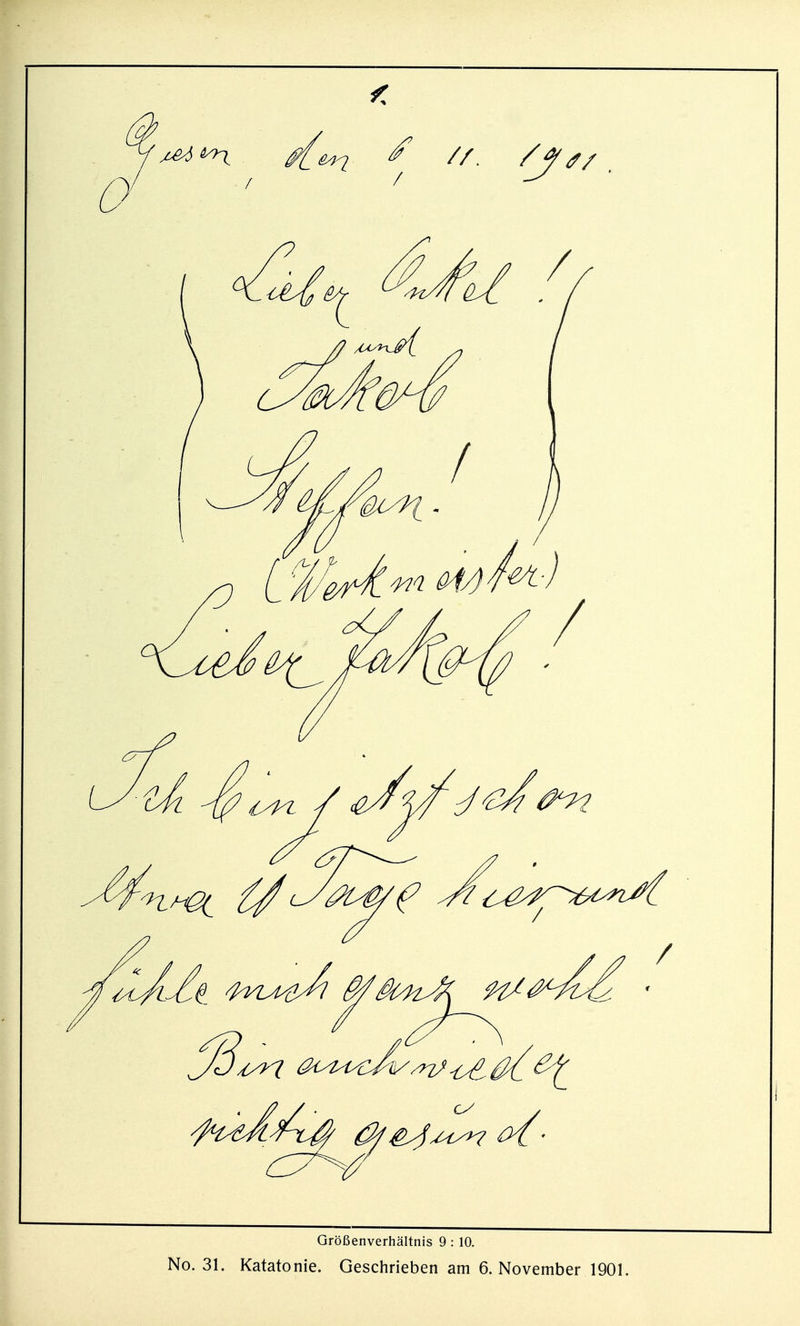 1.
Giesen, den 6, 11. 1901.
Lieber Onkel!
und
Jakob
Steffan!
(Werkmeister)
Lieber Jakob!
Ich bin jetzt schon
Etwa Tage hier, und
fühle mich ganz wohl!
Bin auch wieder
richtig gesund.
Größenverhältnis 9 : 10.
No. 31. Katatonie. Geschrieben am 6. November 1901.